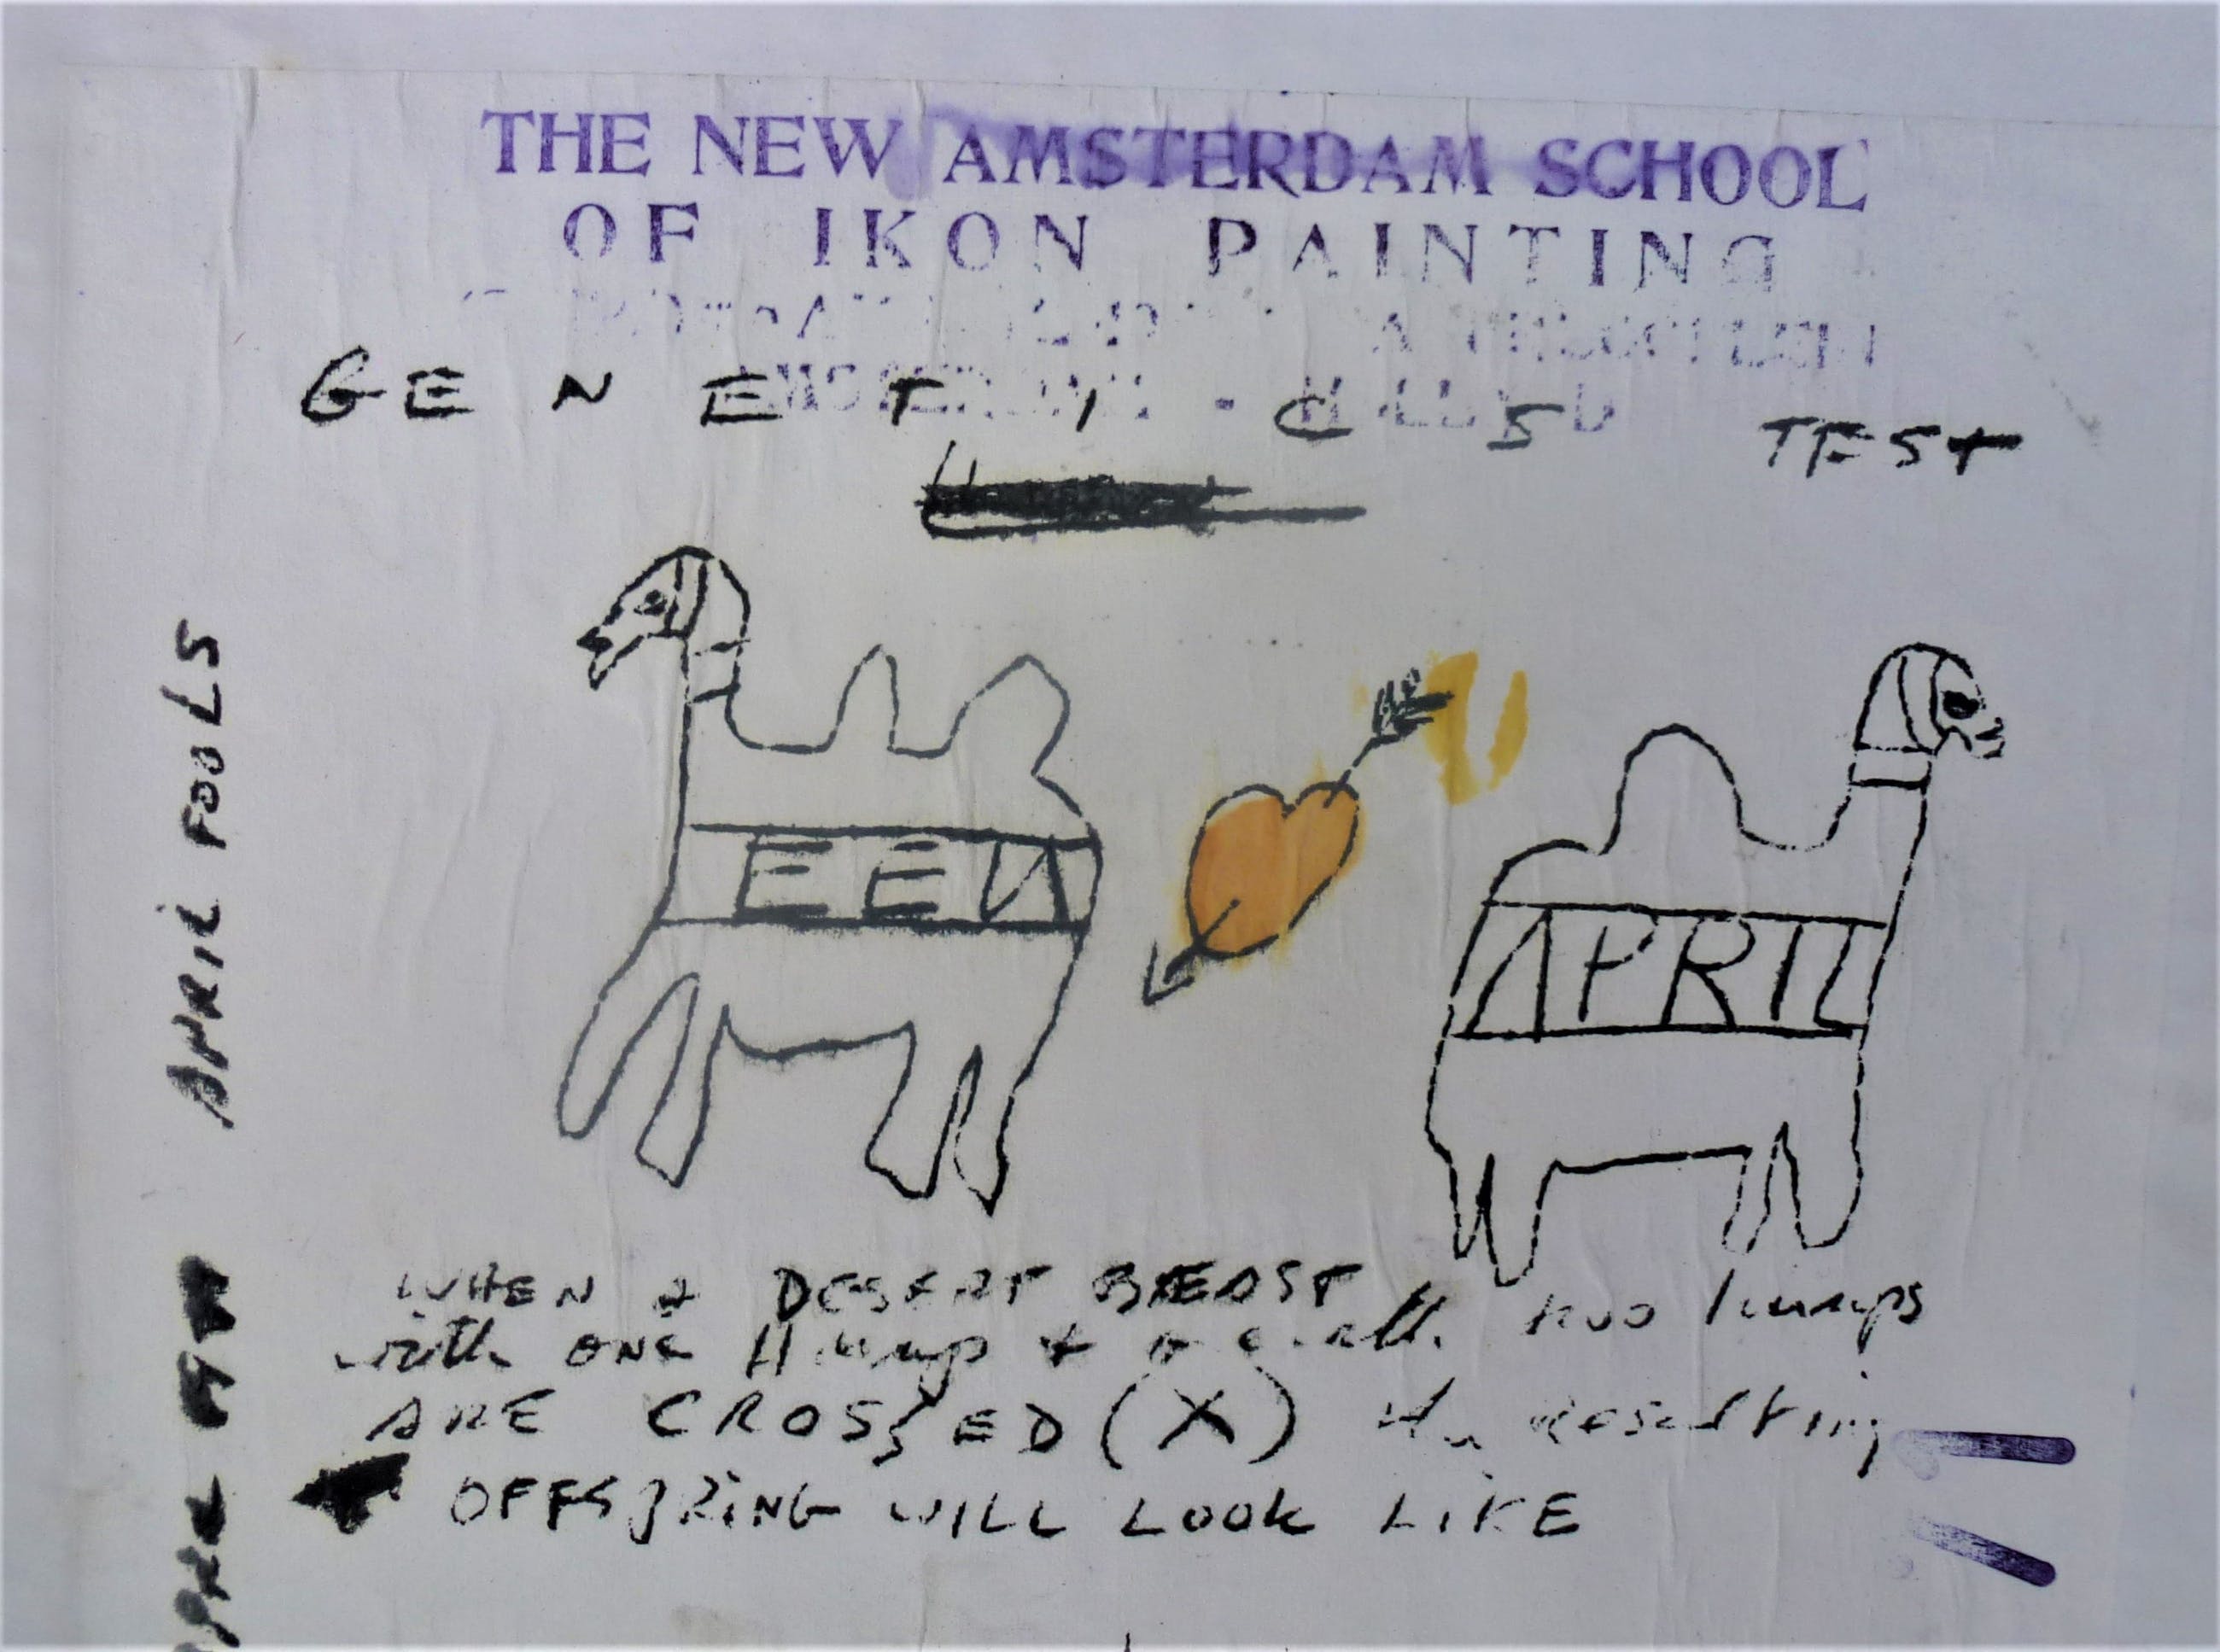 THE NEW AMSTERDAM SCHOOL
OF IKON PAINTING
GENETICS TEST
EEN
APRIL
APRIL FOOLS
WHEN a DESERT BEAST
with one Hump + a with two humps
ARE CROSSED (X) the Resulting
OFFSPRING WILL LOOK LIKE